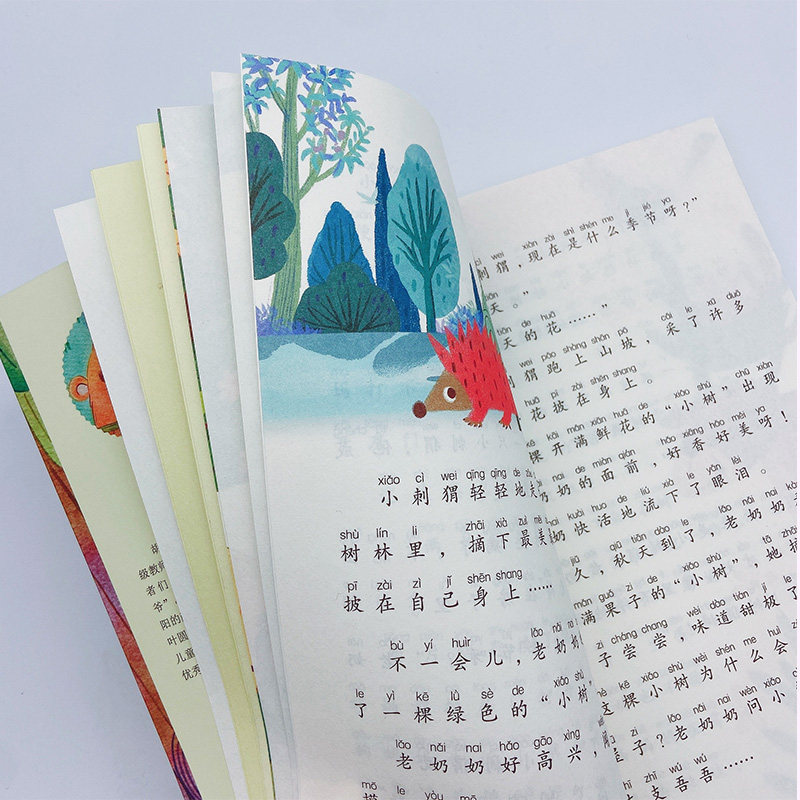 级教师
者们
爷”，
阳的
叶圆
儿童
优秀
xiǎo cì wei qīng qīng de
小刺猬轻轻地
shù lín li zhāi xià zuì měi
树林里，摘下最美
pī zài zì jǐ shēn shang
披在自己身上……
bù yí huìr lǎo nǎi nai
不一会儿，老奶奶
le yì kē lǜ sè de
了一棵绿色的“小树，
lǎo nǎi nai hǎo gāo xìng
老奶奶好高兴，
mō le yòu mō
cì wei xiàn zài shì shén me jì jié ya
刺猬，现在是什么季节呀？”
天。”
tiān de huā
天的花……”
wei pǎo shàng shān pō cǎi le xǔ duō
猬跑上山坡，采了许多
huā pī zài shēn shang
花披在身上。
kē kāi mǎn xiān huā de xiǎo shù chū xiàn
棵开满鲜花的“小树”出现
nǎi nai de miàn qián hǎo xiāng hǎo měi ya
奶奶的面前，好香好美呀！
nai kuài huo de liú xià le yǎn lèi
奶快活地流下了眼泪。
jiǔ qiū tiān dào le lǎo nǎi nai
久，秋天到了，老奶奶
mǎn guǒ zi de xiǎo shù tā zhāi
满果子的“小树”，她摘
zi cháng chang wèi dào tián jí le
子尝尝，味道甜极了
zhè kē xiǎo shù wèi shén me huì
这棵小树为什么会
zi lǎo nǎi nai wèn xiǎo
子？老奶奶问小
zhī zhī wú wú
支支吾吾……